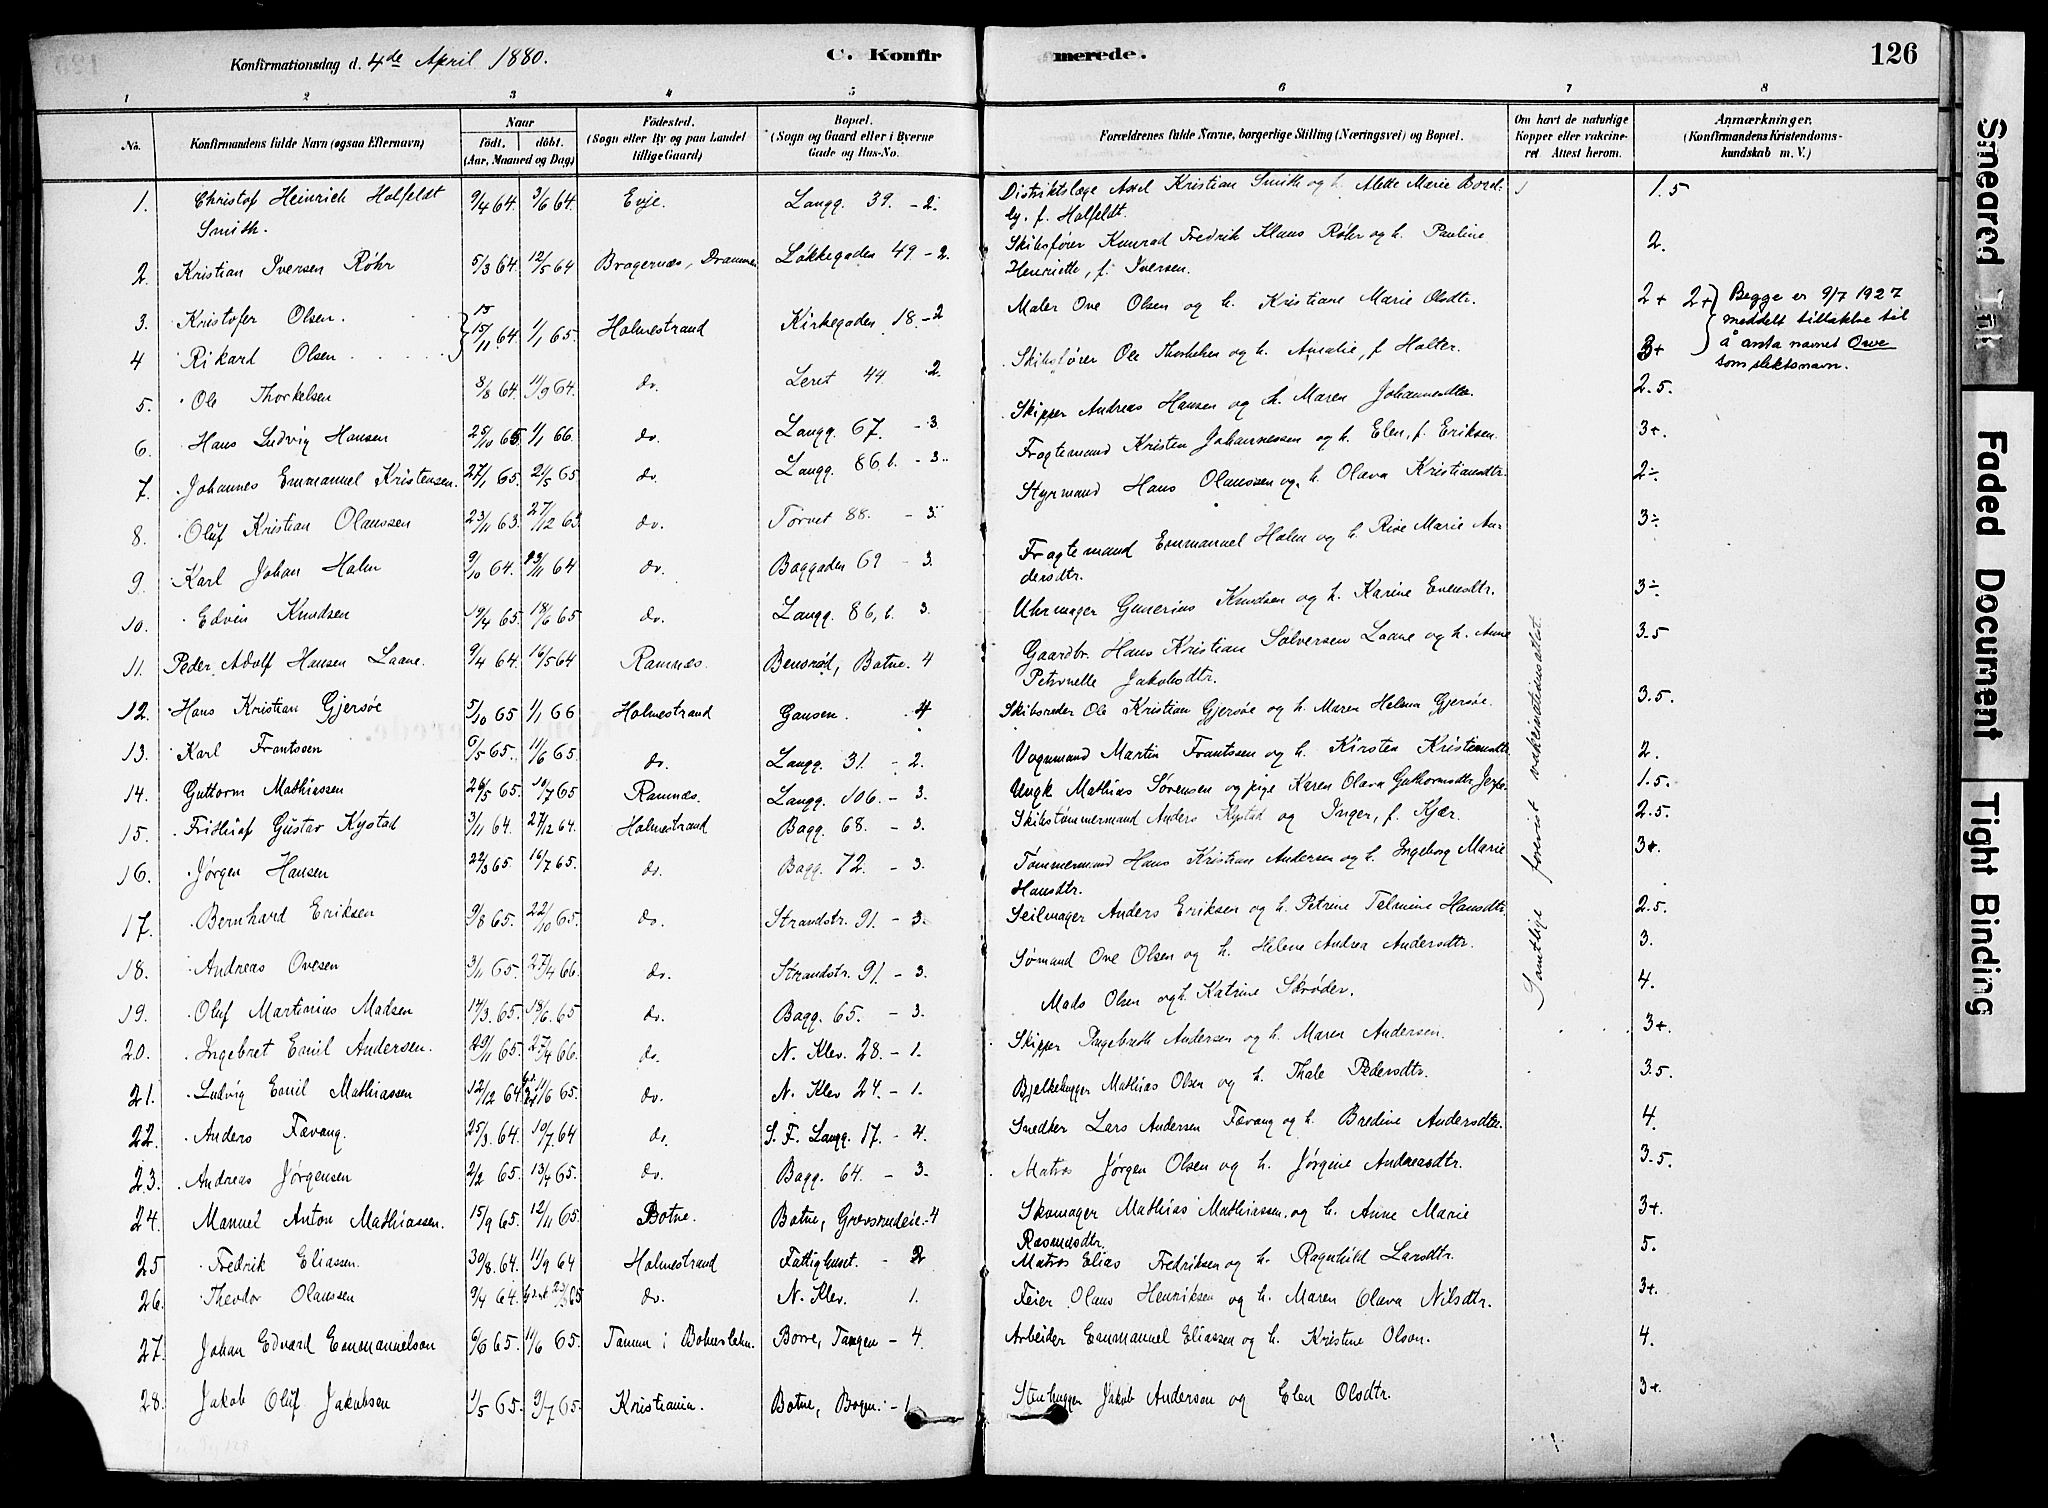 Konfirmationsdag d. 4de April 1880.
C. Konfirmerede.
126
1 2 3 4 5 6 7 8
No.
Konfirmandens fulde Navn (ogsaa Efternavn)
Naar
födt. döbt.
(Aar, Maaned og Dag)
Födested.
(Sogn eller By og paa Landet
tillige Gaard)
Bopæl.
(Sogn og Gaard eller i Byerne
Gade og Hus-No.
Forældrenes fulde Navne, borgerlige Stilling (Næringsvei) og Bopæl.
Om havt de naturlige
Kopper eller vakcine-
ret Attest herom.
Anmærkninger.
(Konfirmandens Kristendoms-
kundskab m. V.)
1. Christof Heinrich Holfeldt 9/4 64. 3/6 64. Evje. Langg. 39. - 2. Distriktslæge Axel Kristian Smith og h. Alette Marie 1.5
Smith. f. Holfeldt.
2. Kristian Iversen Röhr 5/3 64. 12/5 64 Bragernæs, Drammen Løkkegaden 49 - 2. Skibsfører Konrad Fredrik Klaus Röhr og h. Pauline 2.
Henriette, f. Iversen.
3. Kristofer Olsen. 15/11 64. 1/1 65. Holmestrand Kirkegaden 18. - 2 Maler Ove Olsen og h. Kristiane Marie Olsdtr. 2+ 2+ Begge er 9/7 1927
meddelt tillatelse til
å anta navnet Owe
som slektsnavn.
4 Rikard Olsen
5. Ole Thorkelsen 3/8 64. 11/9 64. do. Leret 44. 2. Skibsfører Ole Thorkelsen og h. Amalie, f. Holter. 3+
6. Hans Ludvig Hansen 25/10 65. 1/1 66. do. Langg. 67. - 3 Skipper Andreas Hansen og h. Maren Johannesdtr. 2.5
7. Johannes Emmanuel Kristensen. 27/1 65. 21/5 65 do. Langg. 86, b. - 3. Fragtemand Kristen Johannessen og h. Elen, f. Eriksen. 3+.
8. Oluf Kristian Olaussen 23/11 63. 27/12 63. do. Torvet 88. - 3. Styrmand Hans Olaussen og h. Olava Kristiansdtr. 2÷
9. Karl Johan Holm 9/10 64. 23/11 64 do. Baggaden 69 - 3. Fragtemand Emmanuel Holm og h. Rise Marie An-
dersdtr. 3÷
10. Edvin Knudsen 19/4 65. 18/6 65 do. Langg. 86, b. 3. Uhrmager Gunerius Knudsen og h. Karine Evensdtr. 3÷
11. Peder Adolf Hansen Laane. 9/4 64. 16/5 64 Ramnæs. Bensrød, Botne. 4 Gaardbr. Hans Kristian Solversen Laane og h. Anne 3.5
Petronelle Jakobsdtr.
12. Hans Kristian Gjersøe 5/10 65 1/1 66 Holmestrand Gausen. 4 Skibsreder Ole Kristian Gjersøe og h. Maren Helene Gjersøe. 3.5
13. Karl Frantssen 6/5 65. 11/6 65. do. Langg. 31. - 2. Vognmand Martin Frantssen og h. Kirsten Kristensdtr. 2.
14. Guttorm Mathiassen 26/5 65. 16/7 65 Ramnæs. Langg. 106. - 3. Ungk. Mathias Sørensen og pige Karen Olava Guthormsdtr. 1.5.
15. Fridtiuf Gustav Kystad 3/11 64. 27/12 64. Holmestrand Bagg. 68. - 3. Skibstømmermand Anders Kystad og Inger, f. Kjær. 2.5.
16. Jørgen Hansen 22/3 65. 16/7 65. do. Bagg. 72. - 3. Tømmermand Hans Kristian Andersen og h. Ingeborg Marie 3+.
Hansdtr.
17. Bernhard Eriksen 9/8 65. 22/10 65. do. Strandstr. 91. - 3. Seilmager Anders Eriksen og h. Petrine Talmine Hansdtr. 2.5.
18. Andreas Ovesen 3/11 65. 27/4 66. do. Strandstr. 91. - 3. Sømand Ove Olsen og h. Helene Andrea Andersdtr. 3.
19. Oluf Martinius Madsen 17/3. 65. 18/6. 65 do. Bagg. 65. - 3. Mads Olsen og h. Katrine Skrøder. 4.
20. Ingebret Emil Andersen. 29/11 65. 27/4 66. do. N. Klev. 28. - 1. Skipper Ingebreth Andersen og h. Maren Andersen. 3+.
21. Ludvig Emil Mathiassen 12/12 64 11/6 65. do. N. Klev 24. - 1. Bjelkehugger Mathias Olsen og h. Thale Pedersdtr. 3.5.
22. Anders Favang. 25/3. 64. 10/7 64 do. S. F. Langg. 17. - 4. Snedker Lars Andersen Favang og h. Bredine Andersdtr. 4.
23. Andreas Jørgensen 2/2 65. 13/4 65. do. Bagg. 64. - 3. Matros Jørgen Olsen og h. Jørgine Andreasdtr. 3.5.
24. Manuel Anton Mathiassen. 15/9 65. 12/11 65. Botne. Botne, Grevsrudeie. - 4 Skomager Mathias Mathiassen og h. Anne Marie 3+.
Rasmusdtr.
25 Fredrik Eliassen. 30/8. 64. 11/9 64 Holmestrand Fattighuset. - 2 Matros Elias Fredriksen og h. Ragnhild Larsdtr. 5.
26. Theodor Olaussen 9/4 64. do. N. Klev. 1. Feier Olaus Henriksen og h. Maren Olava Nilsdtr. 3+.
27. Johan Edvard Emmanuelson 6/6 65. 11/6 65. Tanum i Bohuslehn. Borre, Tangen - 4. Arbeider Emmanuel Eliassen og h. Kristine Olson. 4.
28. Jakob Oluf Jakobsen 1/5 65. 9/7 65. Kristiania. Botne, Bogen. - 1 Stenhugger Jakob Anderson og Elen Olsdtr. 3+.
Samtlige forevist vakcinationsattest.
Smeared Ink
Faded Document
Tight Binding